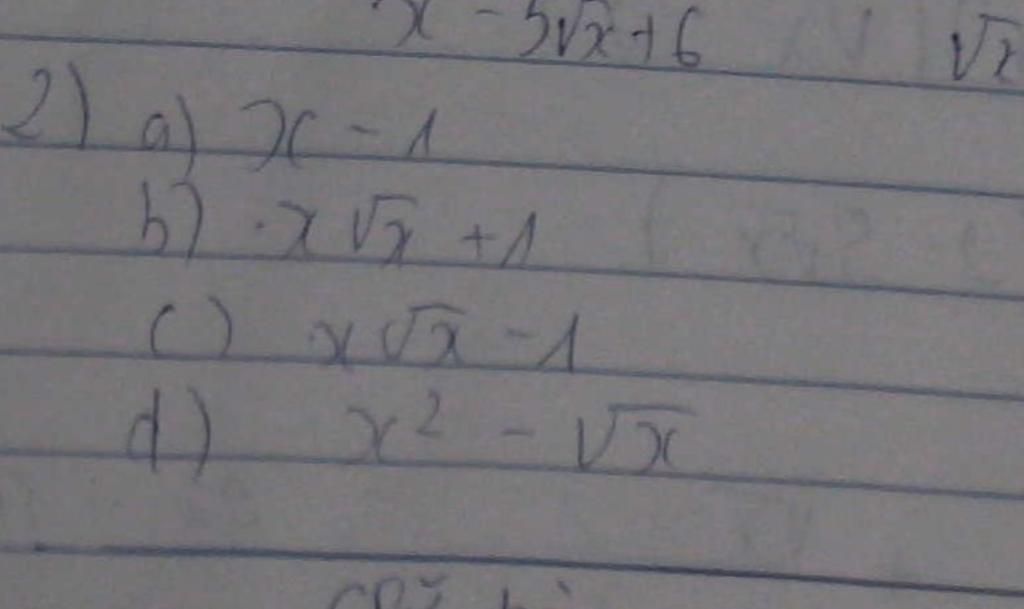 x - 5√x + 6 √x
2) a) x - 1
b) x√x + 1
c) x√x - 1
d) x² - √x